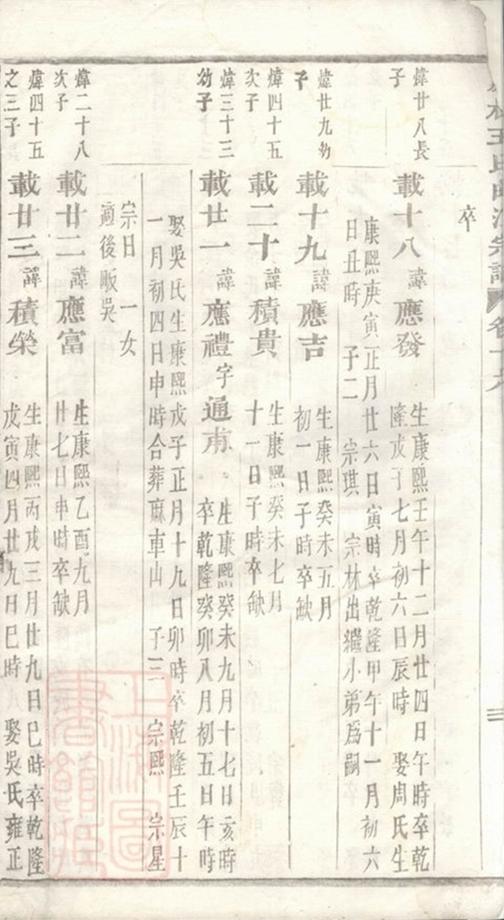 王氏
宗譜
卒
煒廿八長
子
載十八諱應發
生康熙壬午十二月廿四日午時卒乾
隆戊子七月初六日辰時　娶周氏生
康熙庚寅正月廿六日寅時卒乾隆甲午十一月初六
日丑時　子二　宗琪　宗林出繼小弟爲嗣
煒廿九幼
子
載十九諱應吉
生康熙癸未五月
初一日子時卒缺
煒四十五
次子
載二十諱積貴
生康熙癸未七月
十一日子時卒缺
煒三十三
幼子
載廿一諱應禮字通甫
生康熙癸未九月十七日亥時
卒乾隆癸卯八月初五日午時
娶吳氏生康熙戊子正月十九日卯時卒乾隆壬辰十
一月初四日申時合葬麻車山　子三　宗熙　宗星
宗日　一女
適後畈吳
煒二十八
次子
載廿二諱應富
生康熙乙酉九月
廿七日申時卒缺
煒四十五
之三子
載廿三諱積榮
生康熙丙戌三月廿九日巳時卒乾隆
戊寅四月廿九日巳時　娶吳氏雍正
上海圖
書館藏